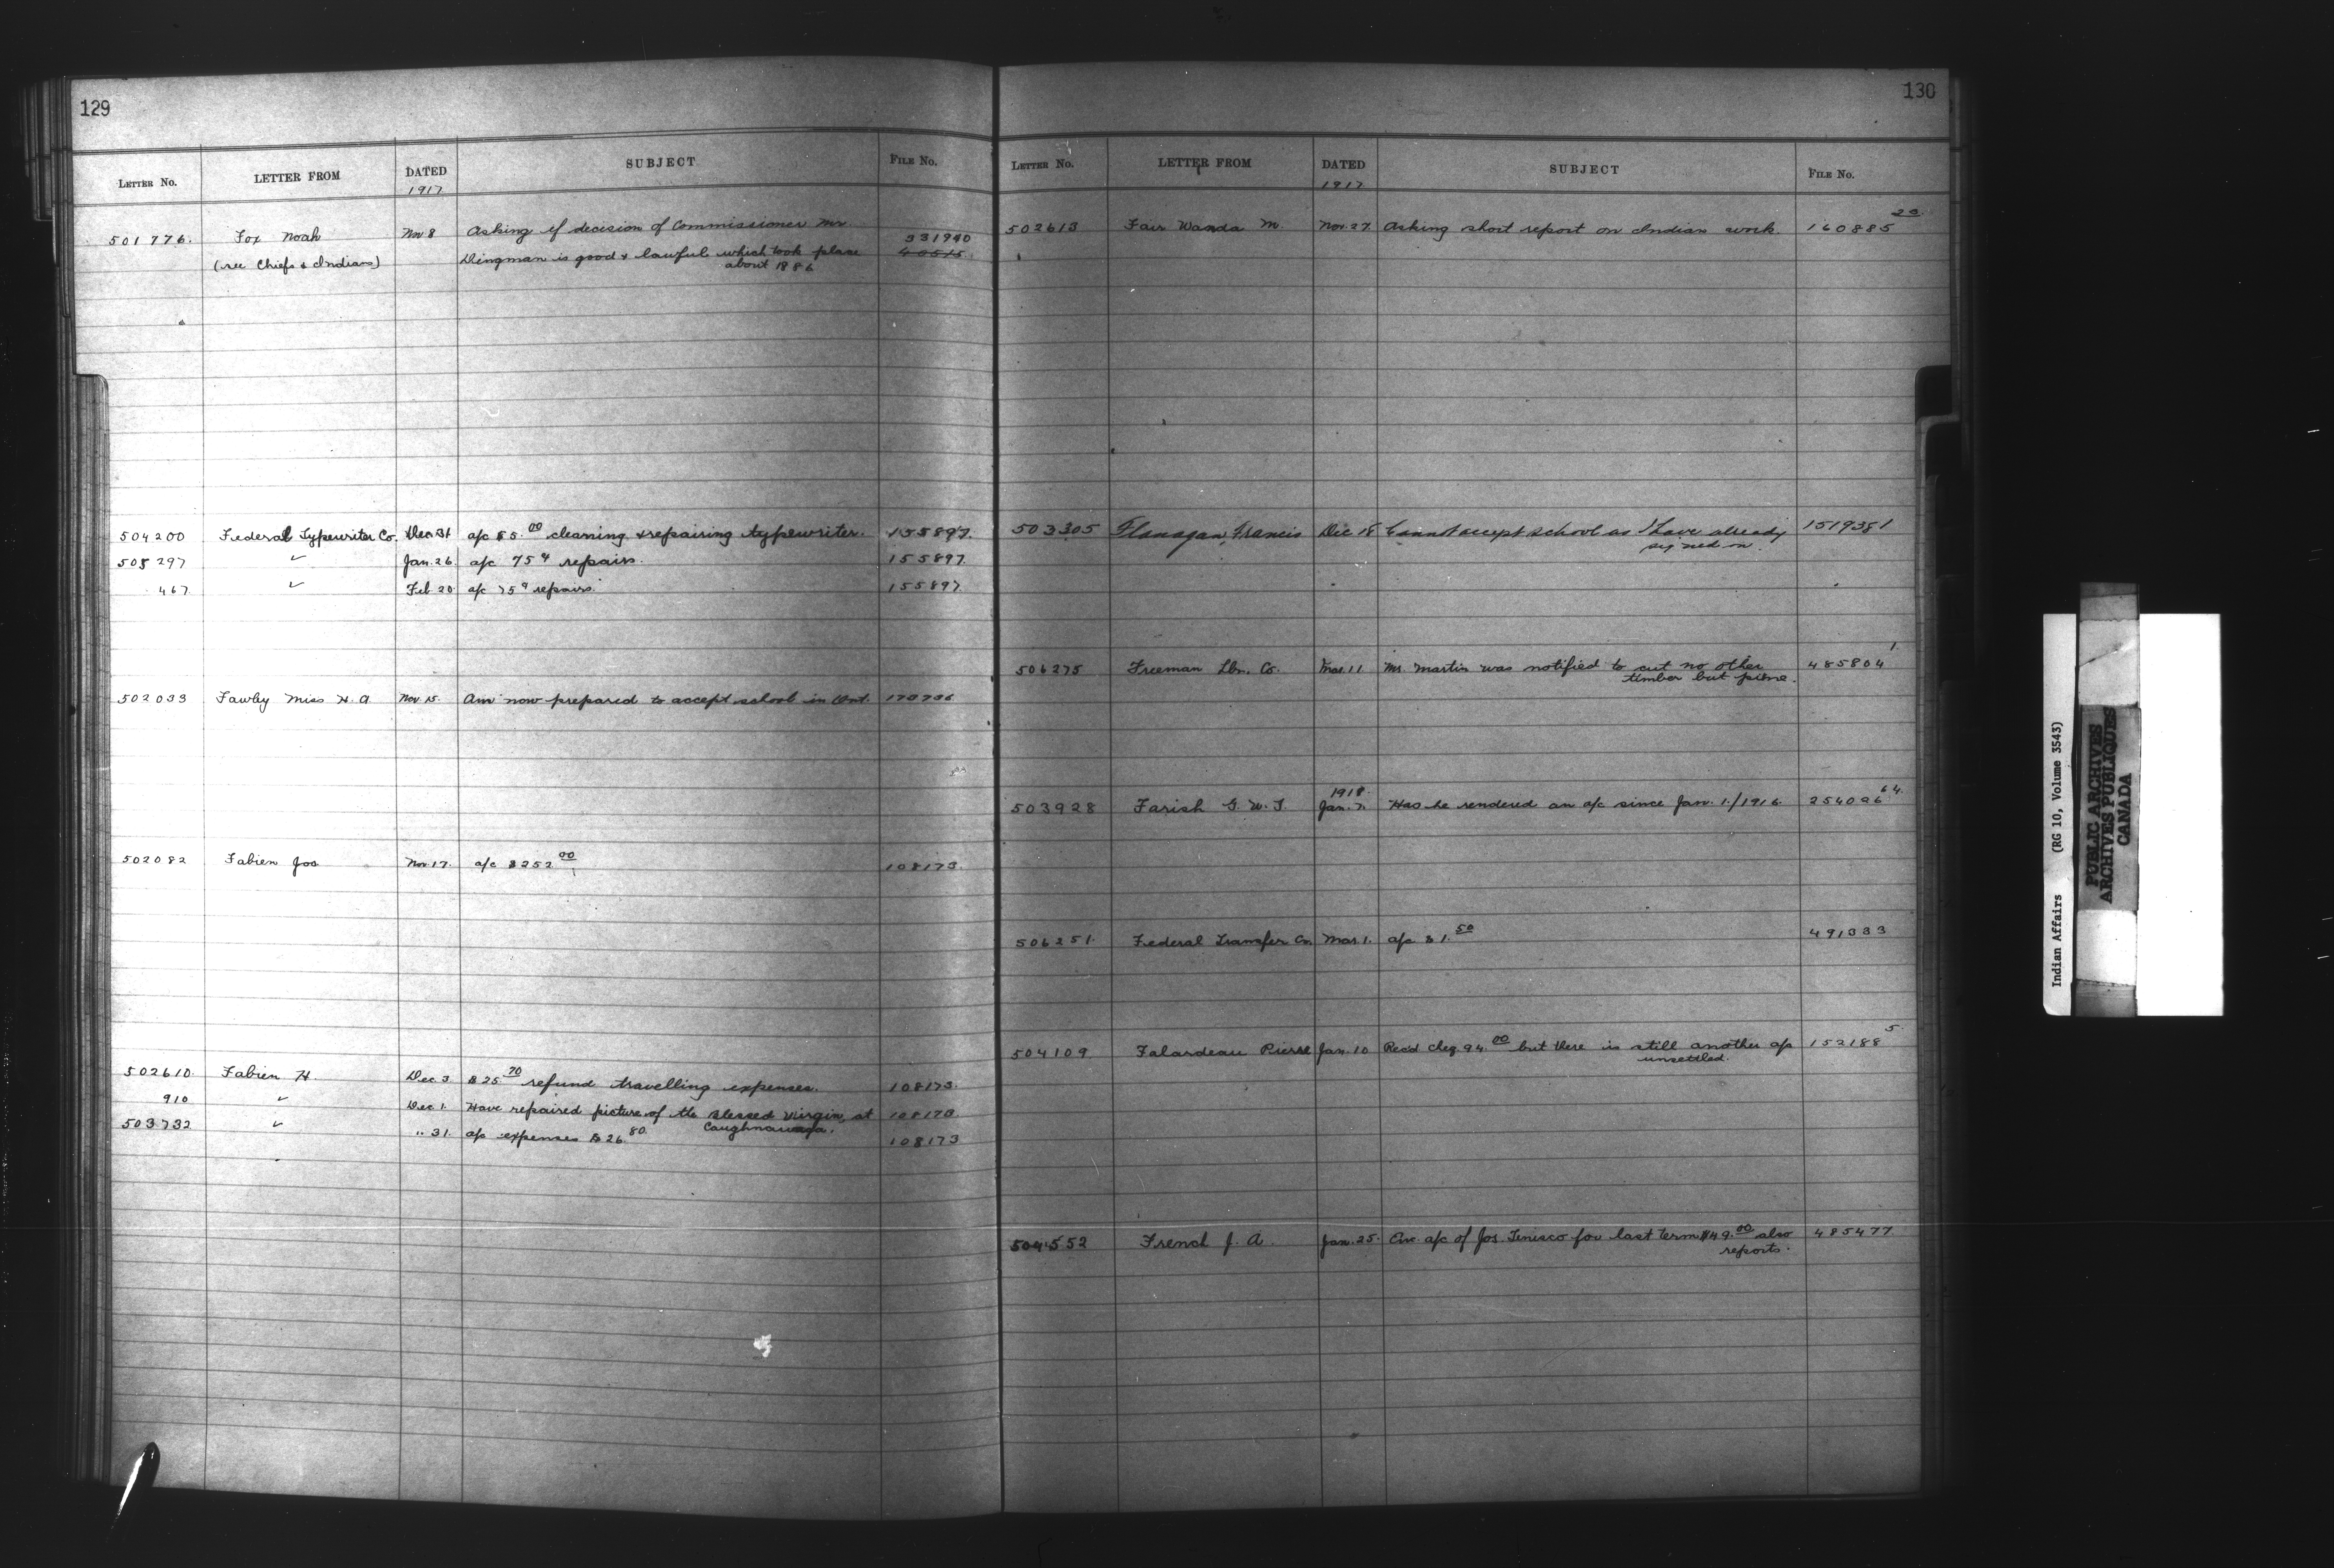 129
LETTER NO. LETTER FROM DATED SUBJECT FILE NO.
1917
501776. Fox Noah Nov 8 Asking if decision of Commissioner Mr 331940
(see Chiefs & Indians) Dingman is good & lawful which took place 40515
about 1886
504200 Federal Typewriter Co. Dec 31 a/c $5.00 cleaning & repairing typewriter. 155897.
505297 " Jan. 26 a/c 75¢ repairs. 155897.
467 " Feb 20 a/c 75¢ repairs. 155897
502033 Fawley Miss H. A. Nov 15. Am now prepared to accept school in Ont. 173736
502082 Fabien Jos Nov. 17. a/c $252.00 108173.
502610. Fabien H. Dec 3 $25.70 refund travelling expenses. 108173.
910 " Dec 1. Have repaired picture of the Blessed Virgin, at 108173.
Caughnawaga.
503732 " " 31. a/c expenses $26.80. 108173
130
LETTER NO. LETTER FROM DATED SUBJECT FILE NO.
1917
502613 Fair Wanda M. Nov. 27. Asking short report on Indian work. 160885 23
503305 Flanagan, Francis Dec 18 Cannot accept school as I have already 151938 1
signed on.
506275 Freeman Lbr. Co. Mar. 11. Mr. Martin was notified to cut no other 485804 1
timber but pine.
1918.
503928 Farish G. W. T. Jan. 7. Has he rendered an a/c since Jan. 1./1916. 254026 64.
506251. Federal Transfer Co. Mar. 1. a/c $1.50 491333
504109 Falardeau Pierre Jan. 10 Rec'd cheq. 94.00 but there is still another a/c 152188 5
unsettled.
504552 French J. A. Jan. 25. Enc. a/c of Jos. Tenisco for last term $49.00 also 485477
reports.
Indian Affairs (RG 10, Volume 3543)
PUBLIC ARCHIVES
ARCHIVES PUBLIQUES
CANADA